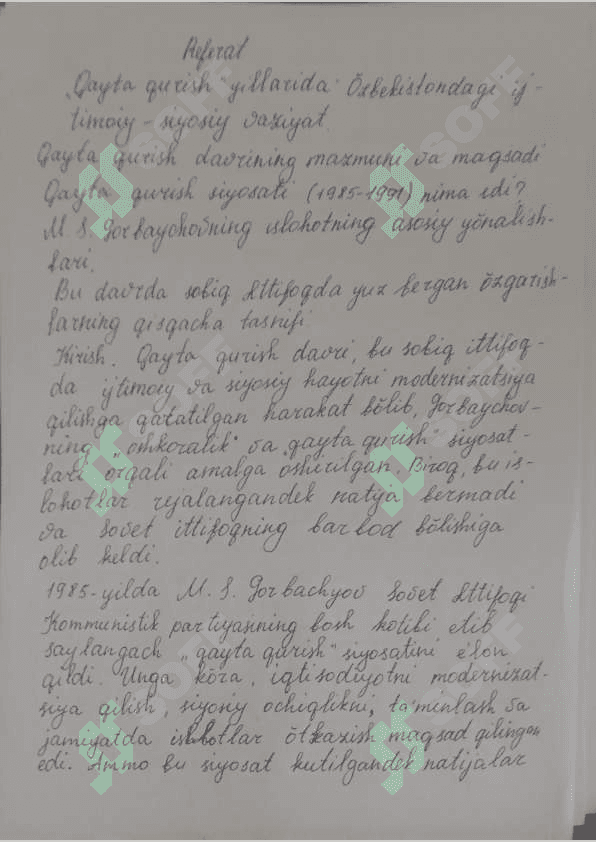 Referat
"Qayta qurish" yillarida Õzbekistondagi ij-
timoiy - siyosiy vaziyat.
Qayta qurish davrining mazmuni va maqsadi
Qayta qurish siyosati (1985-1991) nima edi?
M. S. Gorbaychovning islohotning asosiy yõnalish-
lari.
Bu davrda sobiq Ittifoqda yuz bergan õzgarish-
larning qisqacha tasnifi.
Kirish. Qayta qurish davri, bu sobiq ittifoq-
da ijtimoiy va siyosiy hayotni modernizatsiya
qilishga qaratilgan harakat bõlib, Gorbaychov-
ning "oshkoralik" va "qayta qurish" siyosat-
lari orqali amalga oshirilgan. Biroq, bu is-
lohotlar rejalangandek natija bermadi
va Sovet ittifoqning barbod bõlishiga
olib keldi.
1985-yilda M. S. Gorbachyov Sovet Ittifoqi
Kommunistik partiyasining bosh kotibi etib
saylangach "qayta qurish" siyosatini e'lon
qildi. Unga kõra, iqtisodiyotni modernizat-
siya qilish, siyosiy ochiqlikni, ta'minlash va
jamiyatda islohotlar õtkazish maqsad qilingan
edi. Ammo bu siyosat kutilgandek natijalar
SOFF
SOFF
SOFF
SOFF
SOFF
SOFF